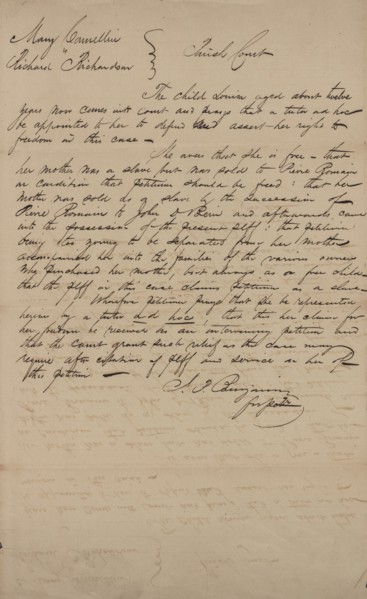 Mary Cornellier
Richard Richardson
Parish Court
The child Louisa aged about twelve
years now comes into court and prays that a tutor ad hoc
be appointed to her to defend and assert her right to
freedom in this case —
She avers that she is free — that
her mother was a slave but was sold to Pierre Romain
on condition that petitioner should be freed: that her
mother was sold as a slave by the succession of
Pierre Romain to John and afterwards came
into the possession of the present plff: that petitioner
being too young to be separated from her mother
accompanied her into the families of the various owners
who purchased her mother, but always as a free child
that the plff in this case claims petitioner as a slave
Wherefore petitioner prays that she be represented
herein by a tutor ad hoc, that this her claim for
her freedom be received as an intervening petition and
that the Court grant such relief as the case may
require after citation of plff and service on her of
this petition —
J. P. Benjamin
for petr